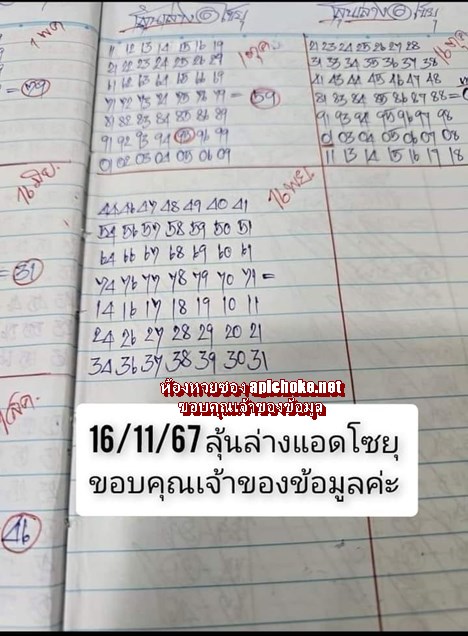 1 พค
11 12 13 14 15 16 19
21 22 23 24 25 26 29
61 62 63 64 65 66 69
= 59
81 82 83 84 85 86 89
91 92 93 94 95 96 99
01 02 03 04 05 06 09
21 23 24 25 26 27 28
31 33 34 35 36 37 38
41 43 44 45 46 47 48
81 83 84 85 86 87 88 =
91 93 94 95 96 97 98
01 03 04 05 06 07 08
11 13 14 15 16 17 18
16 มิย.
= 51
16 พย.
44 46 47 48 49 40 41
54 56 57 58 59 50 51
64 66 67 68 69 60 61
74 76 77 78 79 70 71 =
14 16 17 18 19 10 11
24 26 27 28 29 20 21
34 36 37 38 39 30 31
46
ห้องหวยซอง apichoke.net
ขอบคุณเจ้าของข้อมูล
16/11/67 ลุ้นล่างแอดโซยุ
ขอบคุณเจ้าของข้อมูลค่ะ